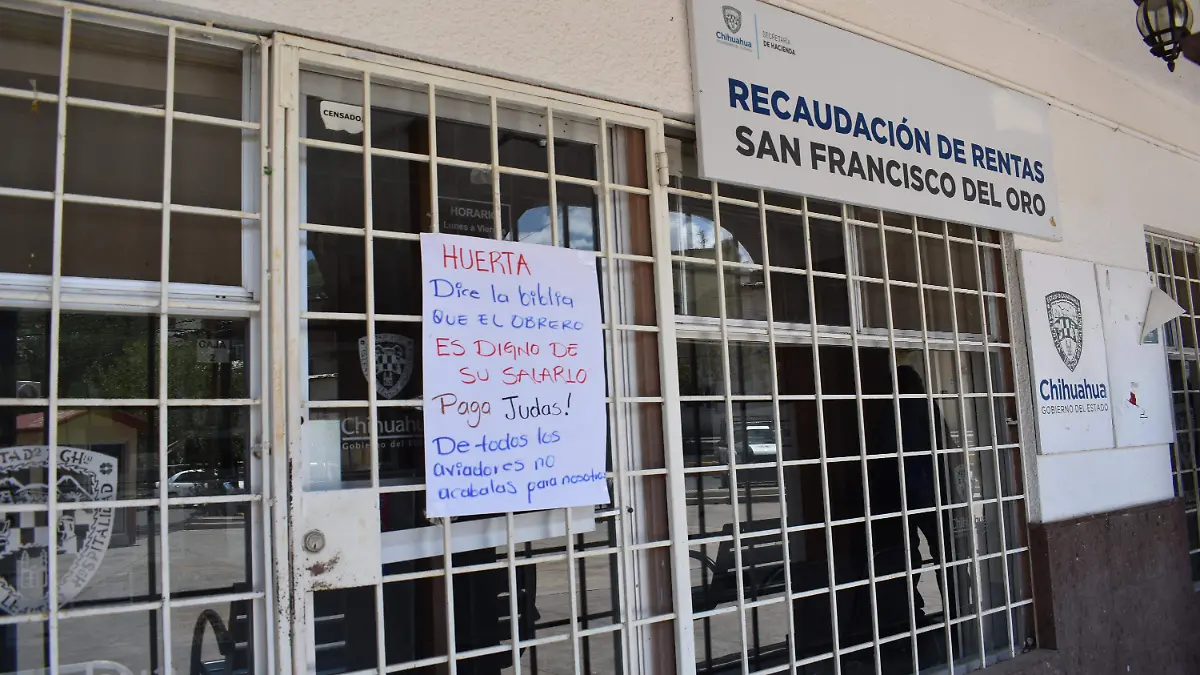 Chihuahua
SECRETARÍA
DE HACIENDA
RECAUDACIÓN DE RENTAS
SAN FRANCISCO DEL ORO
CENSADO
HORARIO
Lunes a Viern
HUERTA
Dice la biblia
QUE EL OBRERO
ES DIGNO DE
SU SALARIO
Paga Judas!
De todos los
aviadores no
acabalas para nosotros
CAJA
2
Chihuahu
Gobierno del Estad
Chihuahua
GOBIERNO DEL ESTADO